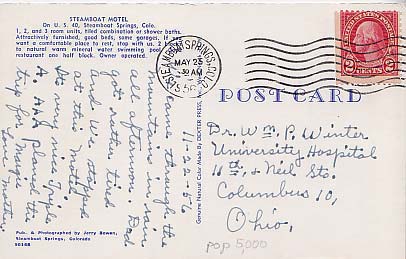 STEAMBOAT MOTEL
On U. S. 40, Steamboat Springs, Colo.
1, 2, and 3 room units, tiled combination or shower baths.
Attractively furnished, good beds, some garages. If you
want a comfortable place to rest, stop with us. 2 blocks
to natural warm mineral water swimming pool
restaurant one half block. Owner operated.
11-22-56
Came through the
mountains in rain
all afternoon. Dad
got rather tired
and we stopped
at this motel.
It's very nice. Triple
A. Has planned the
trip for Margie
Love mother.
Pub. & Photographed by Jerry Bowen,
Steamboat Springs, Colorado
Genuine Natural Color Made By DEXTER PRESS
STEAMBOAT SPRINGS, COLO.
MAY 23
9 AM
1956
2 CENTS 2
POST CARD
Dr. Wm. P. Winter
University Hospital
10th, & Neil Sts.
Columbus 10,
Ohio,
pop 5,000